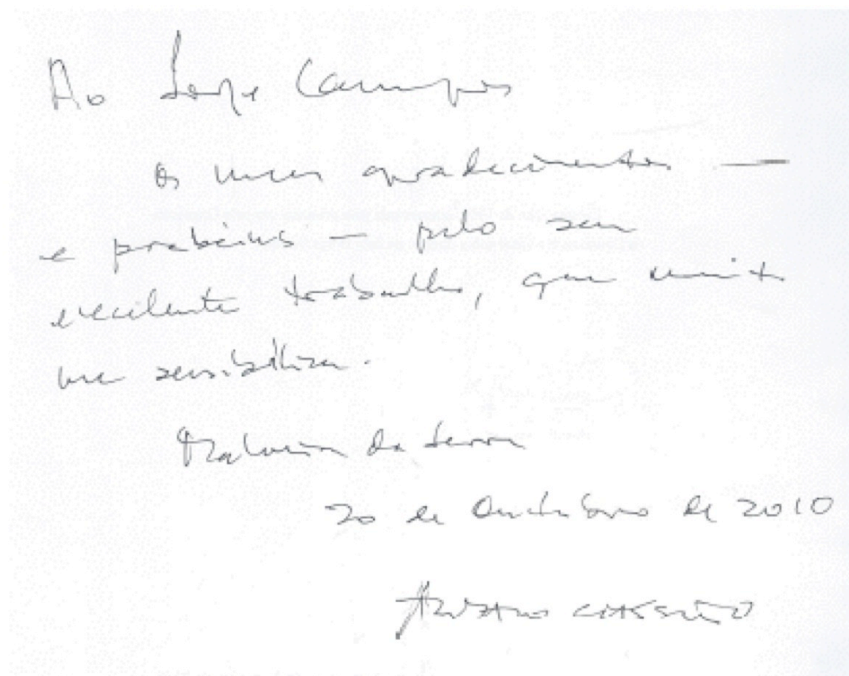 Ao Jorge Campos
Os meus agradecimentos —
e parabéns — pelo seu
excelente trabalho, que muito
me sensibiliza.
Malveira da Serra
20 de Outubro de 2010
Alvaro Cassuto